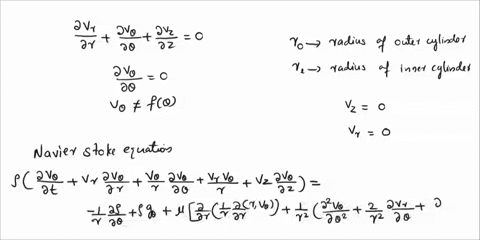 ∂Vr/∂r + ∂Vθ/∂θ + ∂Vz/∂z = 0
∂Vθ/∂θ = 0
Vθ ≠ f(θ)
r0 → radius of outer cylinder
r1 → radius of inner cylinder
Vz = 0
Vr = 0
Navier stoke equation
ρ(∂Vθ/∂t + Vr ∂Vθ/∂r + Vθ/r ∂Vθ/∂θ + VrVθ/r + Vz ∂Vθ/∂z) =
-1/r ∂P/∂θ + ρgθ + μ[∂/∂r(1/r ∂(r,Vθ)/∂r) + 1/r² (∂²Vθ/∂θ² + 2/r² ∂Vr/∂θ +